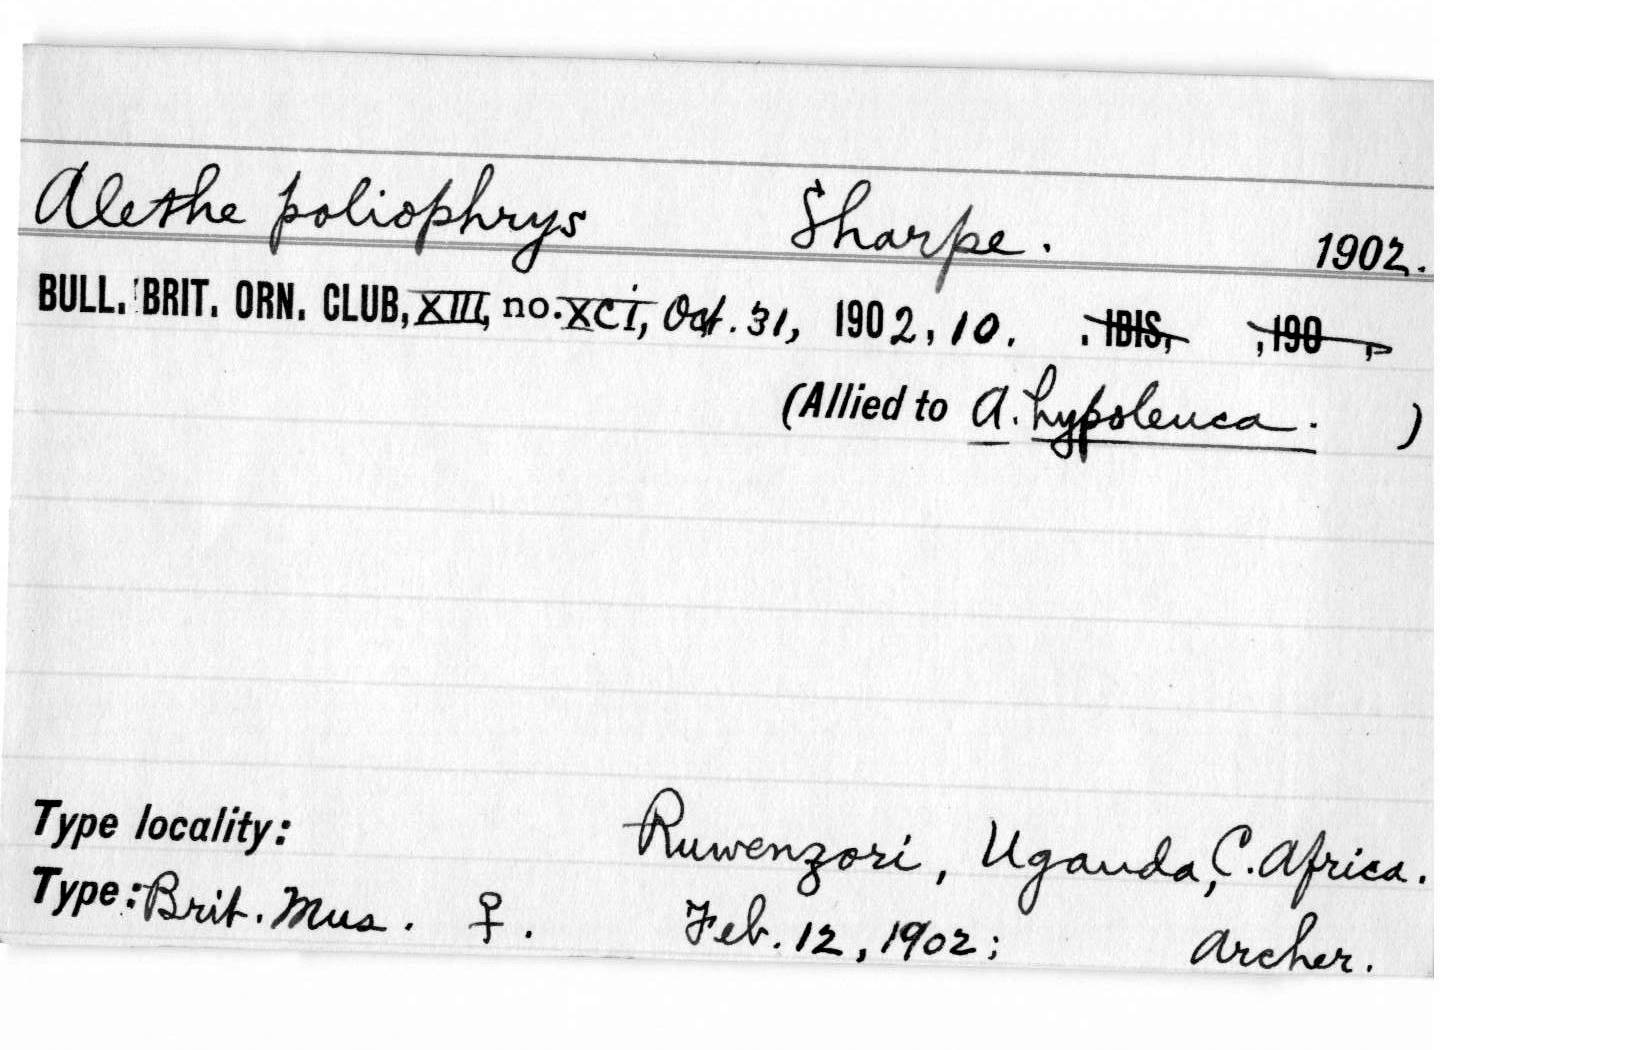 Alethe poliophrys Sharpe. 1902.
BULL. BRIT. ORN. CLUB, XIII, no. XCI, Oct. 31, 1902, 10. . IBIS, , 190 ,
(Allied to A. hypoleuca. )
Type locality: Ruwenzori, Uganda, C. Africa.
Type: Brit. Mus. ♀. Feb. 12, 1902; Archer.